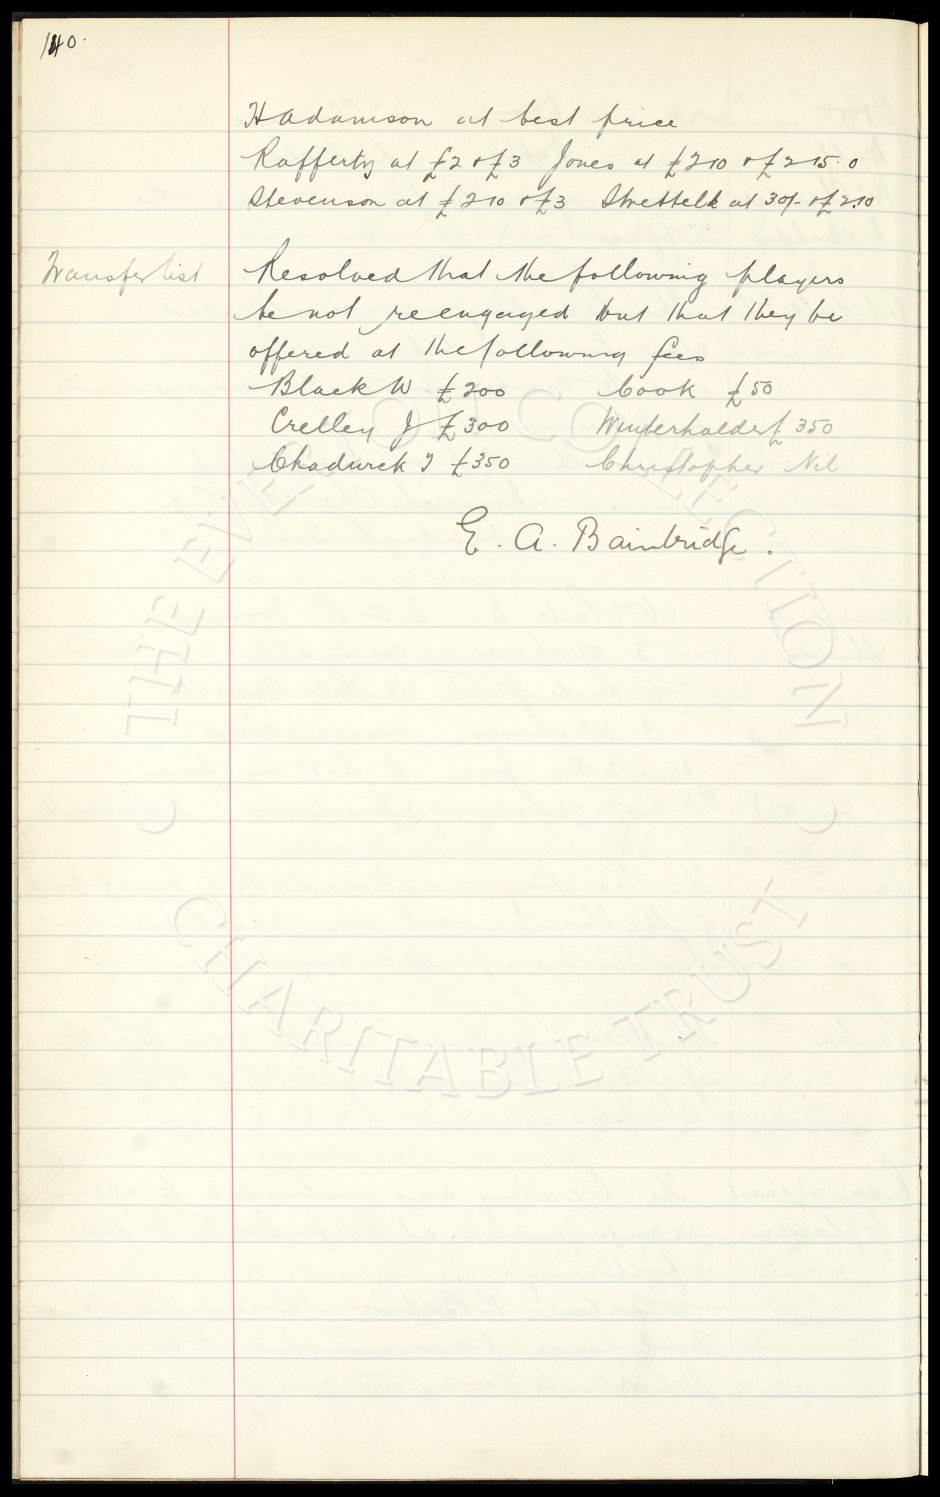 140.
H Adamson at best price
Rafferty at £2 & £3 Jones at £2 10 & £2 15. 0
Stevenson at £2 10 & £3 at 30/- & £2.10
Transfer list Resolved that the following players
be not reengaged but that they be
offered at the following fees
Black W £200 Cook £50
Crelley J £300 Winterhalder £350
Chadwick T £350 Christopher Nil
E. A. Bainbridge.
THE EVERTON COLLECTION
CHARITABLE TRUST